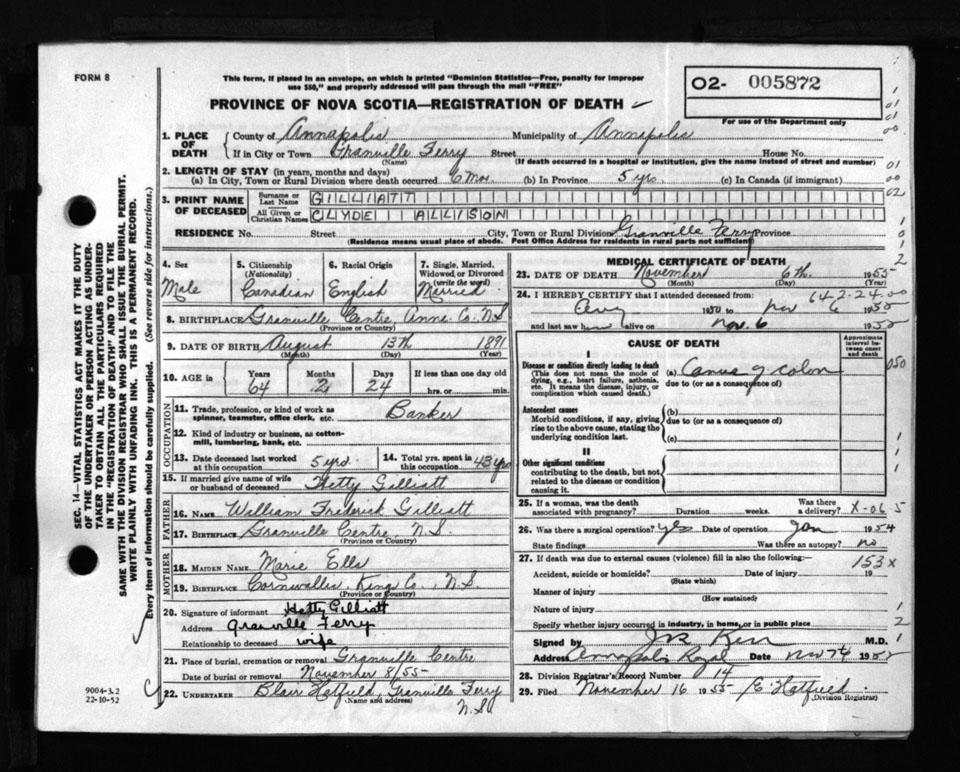 FORM 8
This form, if placed in an envelope, on which is printed "Dominion Statistics—Free, penalty for improper
use $50," and properly addressed will pass through the mail "FREE"
PROVINCE OF NOVA SCOTIA—REGISTRATION OF DEATH
O2- 005872
For use of the Department only
1. PLACE OF DEATH County of Annapolis Municipality of Annapolis
If in City or Town Granville Ferry Street House No.
(Name) (If death occurred in a hospital or institution, give the name instead of street and number)
2. LENGTH OF STAY (in years, months and days)
(a) In City, Town or Rural Division where death occurred 6 Mos. (b) In Province 5 yrs. (c) In Canada (if immigrant)
3. PRINT NAME OF DECEASED Surname or Last Name GILLIATT
All Given or Christian Names CLYDE ALLISON
RESIDENCE No. Street City, Town or Rural Division Granville Ferry Province
(Residence means usual place of abode. Post Office Address for residents in rural parts not sufficient)
4. Sex Male
5. Citizenship (Nationality) Canadian
6. Racial Origin English
7. Single, Married, Widowed or Divorced (write the word) Merried
8. BIRTHPLACE Granville Centre Anna. Co. N.S
(Province or Country)
9. DATE OF BIRTH August 13th 1891
(Month) (Day) (Year)
10. AGE in Years 64 Months 2 Days 24 If less than one day old hrs. or min.
OCCUPATION
11. Trade, profession, or kind of work as spinner, teamster, office clerk, etc. Banker
12. Kind of industry or business, as cotton-mill, lumbering, bank, etc.
13. Date deceased last worked at this occupation 5 yrs. 14. Total yrs. spent in this occupation 43 yrs
15. If married give name of wife or husband of deceased Hetty Gilliatt
FATHER
16. NAME William Frederick Gilliatt
17. BIRTHPLACE Granville Centre, N.S.
(Province or Country)
MOTHER
18. MAIDEN NAME Marie Ells
19. BIRTHPLACE Cornwallis, King Co., N.S.
(Province or Country)
20. Signature of informant Hetty Gilliatt
Address Granville Ferry
Relationship to deceased wife
21. Place of burial, cremation or removal Granville Centre
Date of burial or removal November 8/55-
22. UNDERTAKER Blair Hatfield, Granville Ferry N.S.
(Name and address)
MEDICAL CERTIFICATE OF DEATH
23. DATE OF DEATH November 6th. 1955
(Month) (Day) (Year)
642-24.00
24. I HEREBY CERTIFY that I attended deceased from:
1950 to Nov 6 1955
and last saw h alive on Nov. 6 1955
CAUSE OF DEATH
Approximate interval between onset and death
I
Disease or condition directly leading to death (a) of colon 050
(This does not mean the mode of dying, e.g., heart failure, asthenia, etc. It means the disease, injury, or complication which caused death.)
due to (or as a consequence of)
Antecedent causes (b)
Morbid conditions, if any, giving rise to the above cause, stating the underlying condition last.
due to (or as a consequence of)
(c)
II
Other significant conditions
contributing to the death, but not related to the disease or condition causing it.
25. If a woman, was the death associated with pregnancy? Duration weeks. Was there a delivery? X-065
26. Was there a surgical operation? yes Date of operation Jan 1954
State findings Was there an autopsy? no
27. If death was due to external causes (violence) fill in also the following:— 153X
Accident, suicide or homicide? Date of injury 19
(State which)
Manner of injury
(How sustained)
Nature of injury
Specify whether injury occurred in industry, in home, or in public place
Signed by Kerr M.D.
Address Annapolis Royal Date Nov 7th 1955
28. Division Registrar's Record Number 14
29. Filed November 16 1955 E Hatfield
(Division Registrar)
SEC. 14—VITAL STATISTICS ACT MAKES IT THE DUTY
OF THE UNDERTAKER OR PERSON ACTING AS UNDER-
TAKER TO OBTAIN ALL THE PARTICULARS REQUIRED
IN THE "REGISTRATION OF DEATH" AND TO FILE THE
SAME WITH THE DIVISION REGISTRAR WHO SHALL ISSUE THE BURIAL PERMIT.
WRITE PLAINLY WITH UNFADING INK. THIS IS A PERMANENT RECORD.
Every item of information should be carefully supplied. (See reverse side for instructions.)
9004-3.2
22-10-52